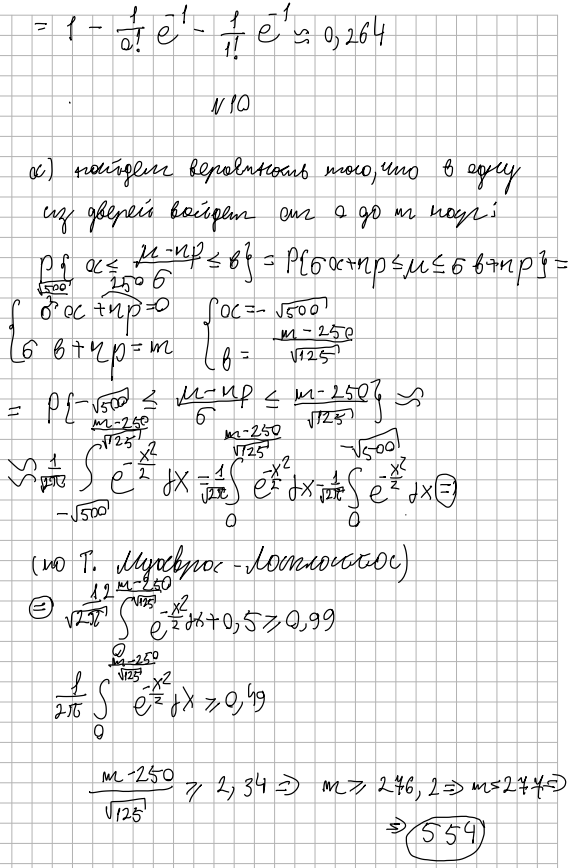 = 1 - 1/0! e^-1 - 1/1! e^-1 ≈ 0,264
N10
а) найдем вероятность того, что в одну
из дверей войдет от 0 до m чел:
P{a ≤ (μ-np)/σ ≤ в} = P{σa+np ≤ μ ≤ σв+np} =
{ σa + np = 0 { a = -√500
√500/2 250
{ σв + np = m { в = (m-250)/√125
= P{-√500 ≤ (μ-np)/σ ≤ (m-250)/√125} ≈
≈ 1/√2π ∫_{-√500}^{(m-250)/√125} e^{-x²/2} dx = 1/√2π ∫_0^{(m-250)/√125} e^{-x²/2} dx - 1/√2π ∫_0^{-√500} e^{-x²/2} dx (=)
(по Т. Муавра-Лапласа)
(=) 1/√2π ∫_0^{(m-250)/√125} e^{-x²/2} dx + 0,5 ≥ 0,99
1/2π ∫_0^{(m-250)/√125} e^{-x²/2} dx ≥ 0,49
(m-250)/√125 ≥ 2,34 ⇒ m ≥ 276,2 ⇒ m=277 ⇒
⇒ 554